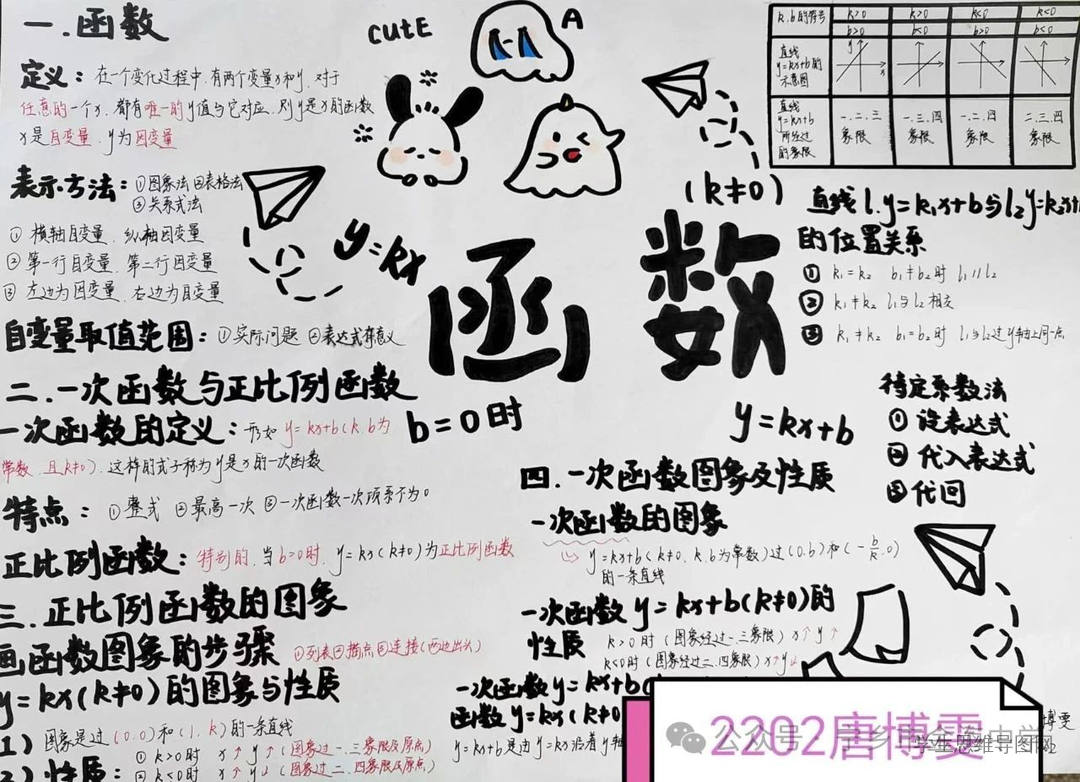 一.函数
定义：在一个变化过程中.有两个变量x和y.对于
任意的一个x.都有唯一的y值与它对应.则y是x的函数
x是自变量.y为因变量
表示方法：①图象法②表格法
③关系式法
① 横轴自变量.纵轴因变量
② 第一行自变量.第二行因变量
③ 左边为因变量.右边为自变量
自变量取值范围：①实际问题 ②表达式有意义
二.一次函数与正比例函数
一次函数的定义：形如 y=kx+b(k.b为
常数.且k≠0).这样的式子称为y是x的一次函数
特点：①整式 ②最高一次 ③一次函数一次项系不为0
正比例函数：特别的.当b=0时.y=kx(k≠0)为正比例函数
三.正比例函数的图象
画函数图象的步骤 ①列表②描点③连接(两边出头)
y=kx(k≠0)的图象与性质
1) 图象是过(0.0)和(1.k)的一条直线
2) 性质：① k>0时 x↑y↑(图象过一.三象限及原点)
② k<0时 x↑y↓(图象过二.四象限及原点)
cutE
A
y=kx
函 数
(k≠0)
b=0时
y=kx+b
k.b的符号 k>0 k>0 k<0 k<0
b>0 b<0 b>0 b<0
直线
y=kx+b的
示意图
y x
直线
y=kx+b
所经过
的象限
一.二.三
象限
一.三.四
象限
一.二.四
象限
二.三.四
象限
直线l.y=k₁x+b与l₂y=k₂x+
的位置关系
① k₁=k₂ b₁≠b₂时 l₁//l₂
② k₁≠k₂ l₁与l₂相交
③ k₁≠k₂ b₁=b₂时 l₁与l₂过y轴上同一点
待定系数法
① 设表达式
② 代入表达式
③ 代回
四.一次函数图象及性质
一次函数的图象
y=kx+b(k≠0.k.b为常数)过(0.b)和(-b/k.0)
的一条直线
一次函数y=kx+b(k≠0)的
性质 k>0时(图象经过一三象限)x↑y↑
k<0时(图象经过二.四象限)x↑y↓
一次函数y=kx+b(
函数y=kx(k≠0
y=kx+b是由y=kx沿着y轴
2202唐博雯
公众号
学生思维导图网
博雯